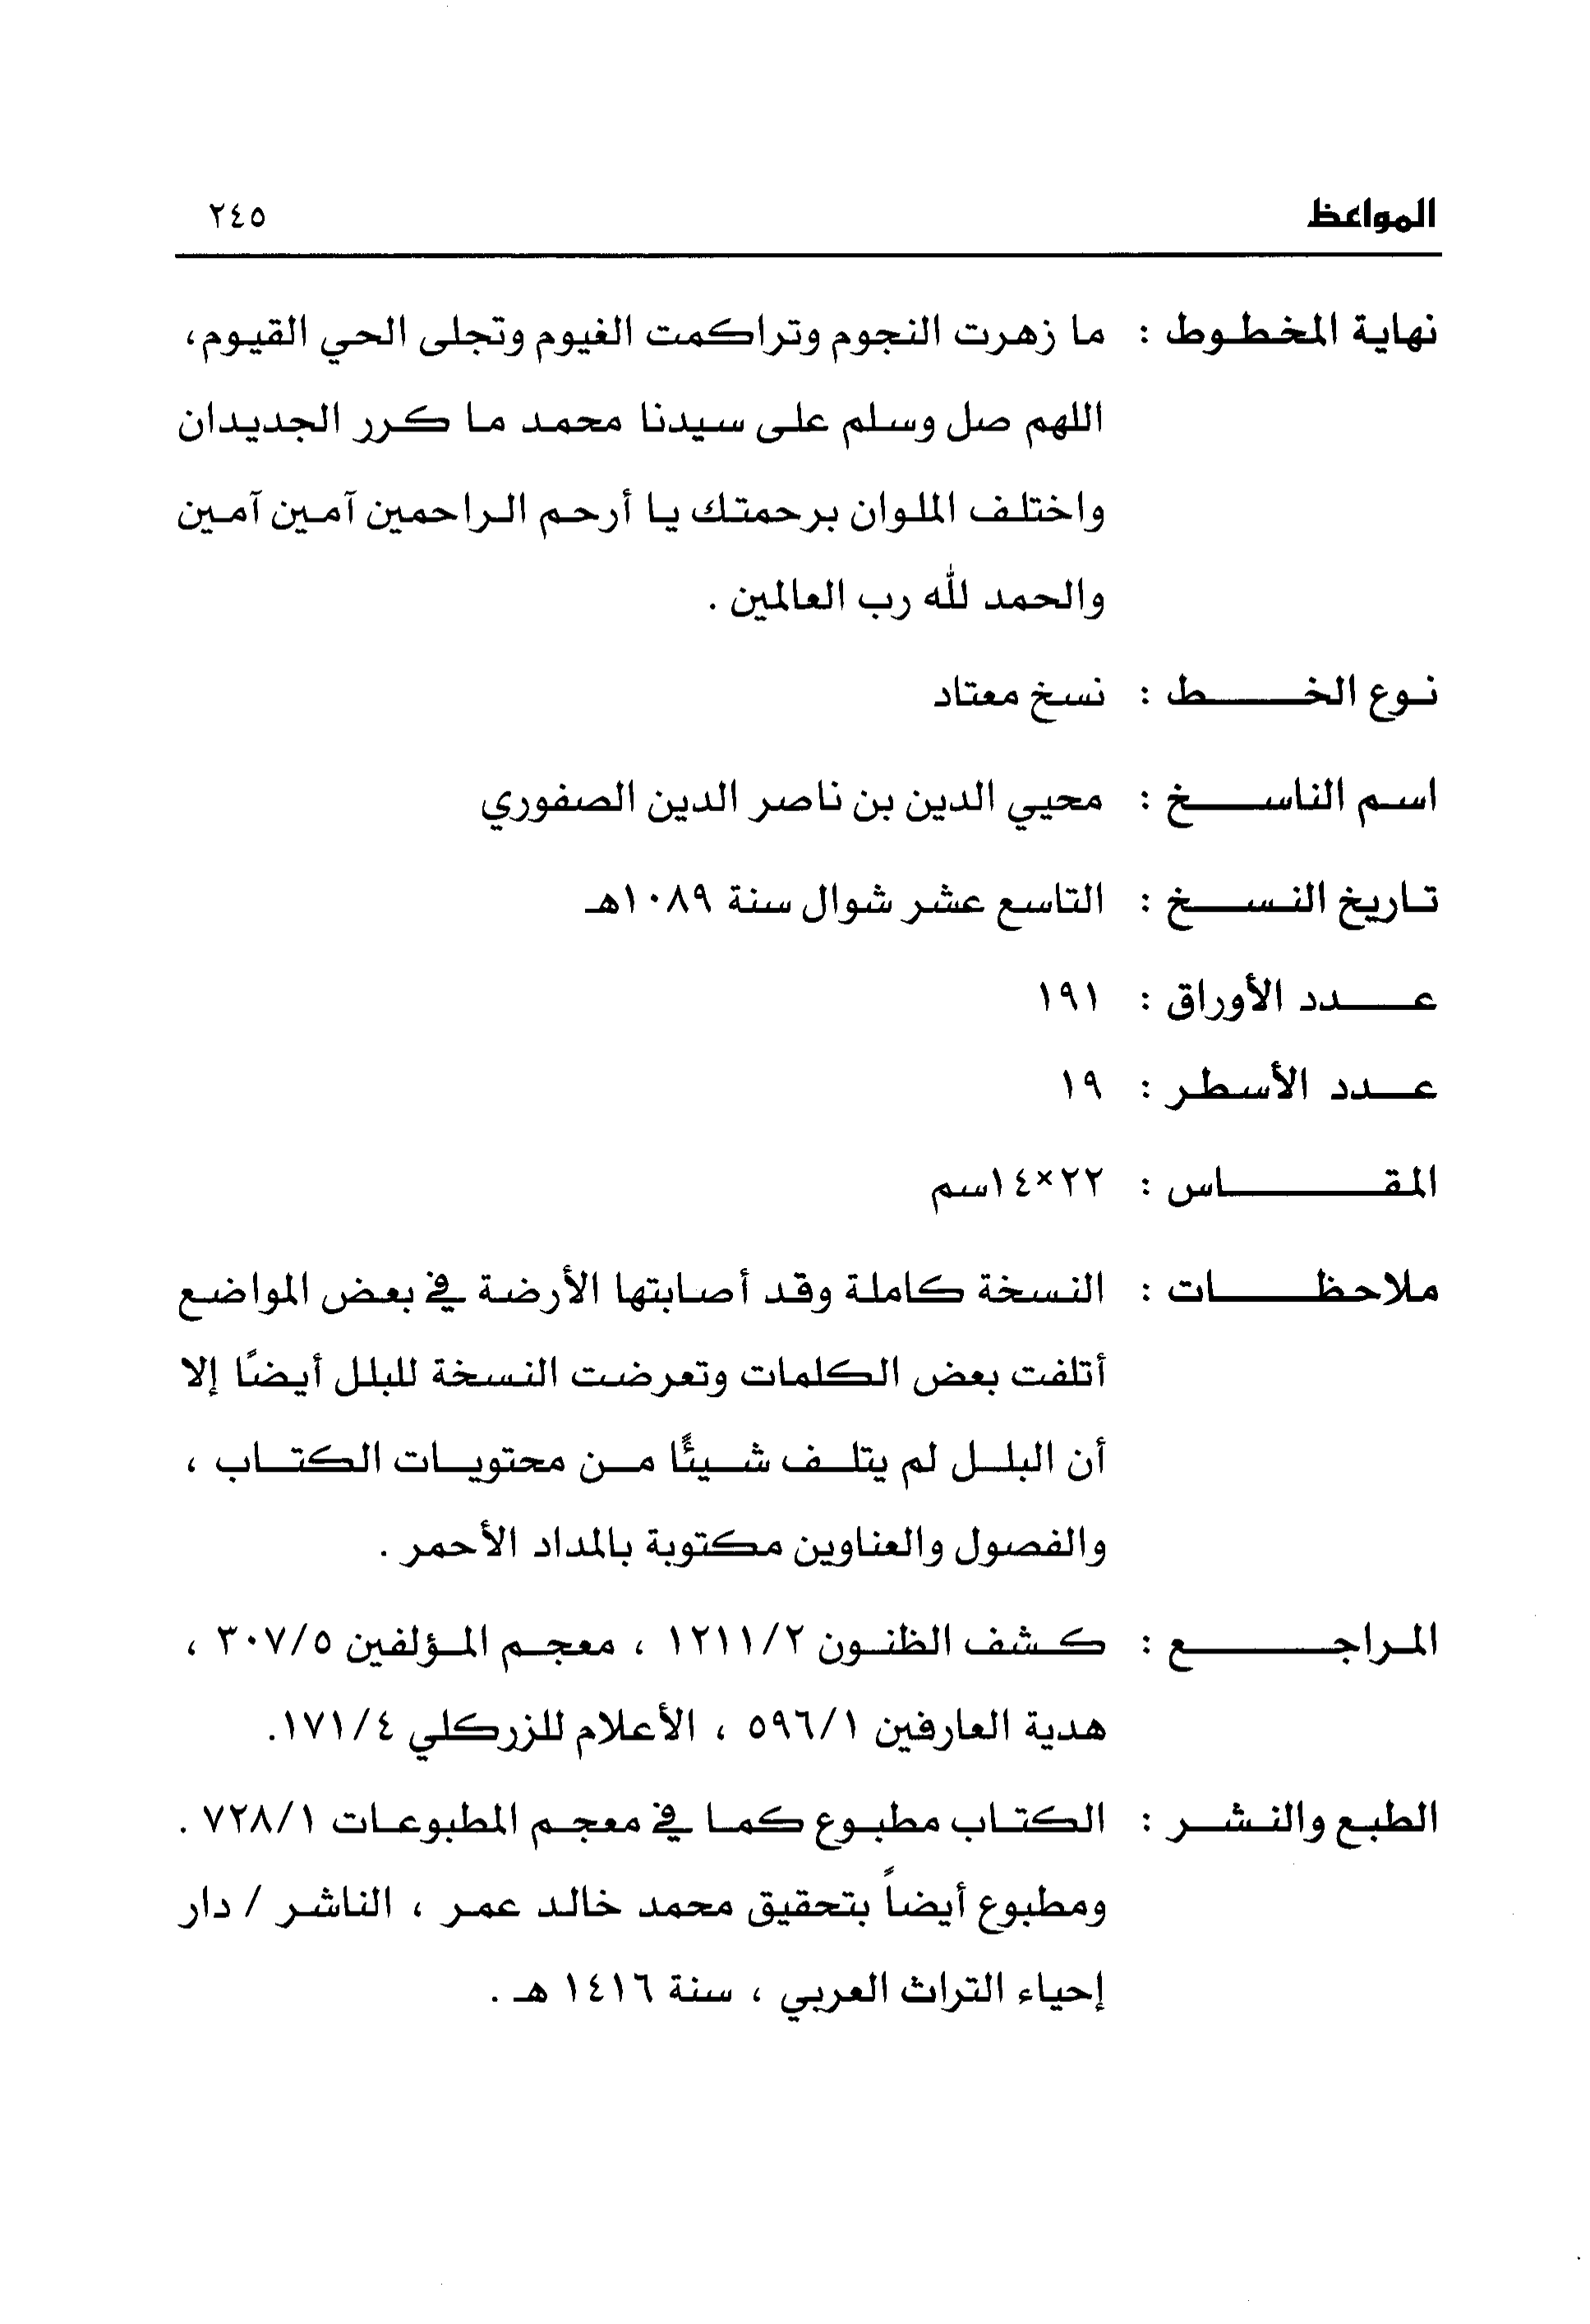 المواعظ ٢٤٥
نهاية المخطوط : ما زهرت النجوم وتراكمت الغيوم وتجلى الحي القيوم،
اللهم صل وسلم على سيدنا محمد ما كرر الجديدان
واختلف الملوان برحمتك يا أرحم الراحمين آمين آمين
والحمد لله رب العالمين .
نوع الخط : نسخ معتاد
اسم الناسخ : محيي الدين بن ناصر الدين الصفوري
تاريخ النسخ : التاسع عشر شوال سنة ١٠٨٩هـ
عدد الأوراق : ١٩١
عدد الأسطر : ١٩
المقاس : ٢٢×١٤سم
ملاحظات : النسخة كاملة وقد أصابتها الأرضة في بعض المواضع
أتلفت بعض الكلمات وتعرضت النسخة للبلل أيضًا إلا
أن البلل لم يتلف شيئًا من محتويات الكتاب ،
والفصول والعناوين مكتوبة بالمداد الأحمر .
المراجع : كشف الظنون ١٢١١/٢ ، معجم المؤلفين ٣٠٧/٥ ،
هدية العارفين ٥٩٦/١ ، الأعلام للزركلي ١٧١/٤.
الطبع والنشر : الكتاب مطبوع كما في معجم المطبوعات ٧٢٨/١ .
ومطبوع أيضاً بتحقيق محمد خالد عمر ، الناشر / دار
إحياء التراث العربي ، سنة ١٤١٦ هـ .